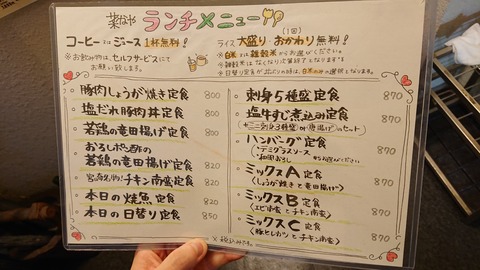 菜なや ランチメニュー
コーヒー又はジュース 1杯無料!
※お飲み物は、セルフサービスにて
お願い致します。
ライス 大盛り・おかわり(1回)無料!
※白米又は雑穀米からお選びください。
※雑穀米はなくなり次第終了となります。
豚肉しょうが焼き定食 800
塩だれ豚肉丼定食 800
若鶏の竜田揚げ定食 800
おろしポン酢の
若鶏の竜田揚げ定食 820
チキン南蛮定食 820
本日の焼魚定食 820
本日の日替り定食 850
刺身5種盛定食 870
塩牛すじ煮込み定食 870
ハンバーグ定食 870
・デミグラスソース
・和風おろし
ミックスA定食 870
(しょうが焼きと竜田揚げ)
ミックスB定食 870
(エビフライとチキン南蛮)
ミックスC定食 870
(豚ヒレカツとチキン南蛮)
※税込みです。